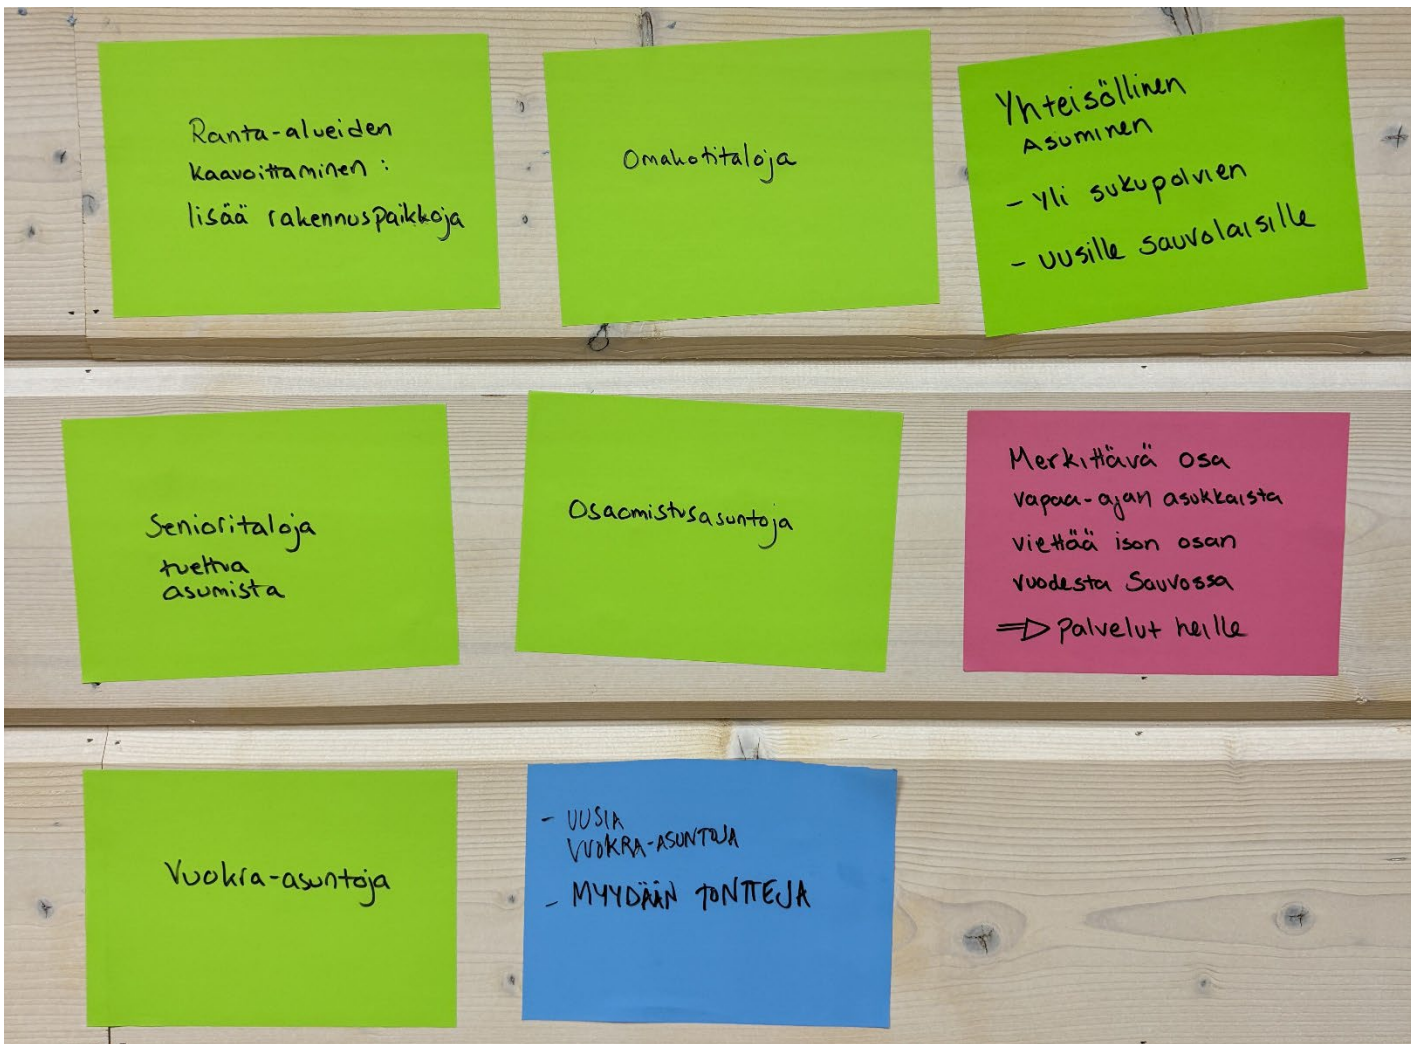 Ranta-alueiden
kaavoittaminen :
lisää rakennuspaikkoja
Omakotitaloja
Yhteisöllinen
Asuminen
- Yli sukupolvien
- uusille sauvolaisille
Senioritaloja
tuettua
asumista
Osaomistusasuntoja
Merkittävä osa
vapaa-ajan asukkaista
viettää ison osan
vuodesta Sauvossa
⇒ palvelut heille
Vuokra-asuntoja
- UUSIA
VUOKRA-ASUNTOJA
- MYYDÄÄN TONTTEJA